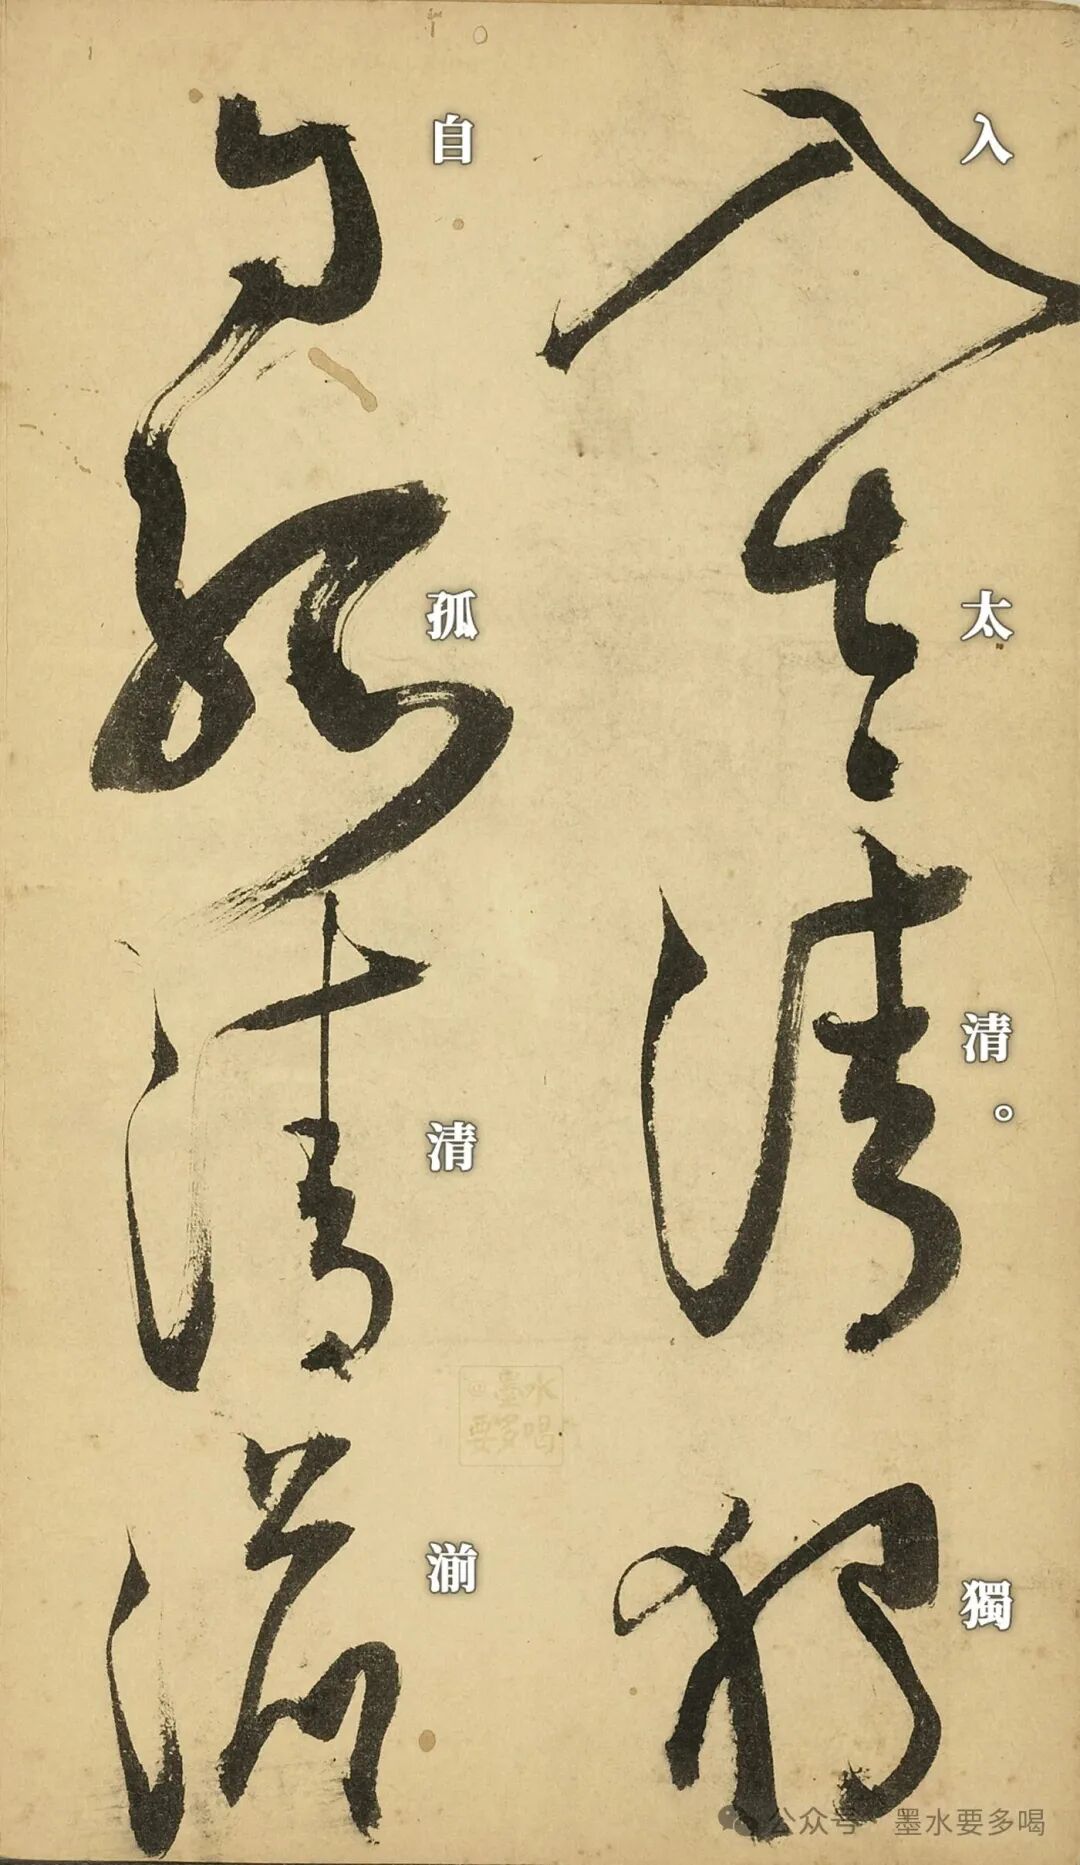 入太清。獨
自孤清湔
墨水
要多喝
公众号 墨水要多喝